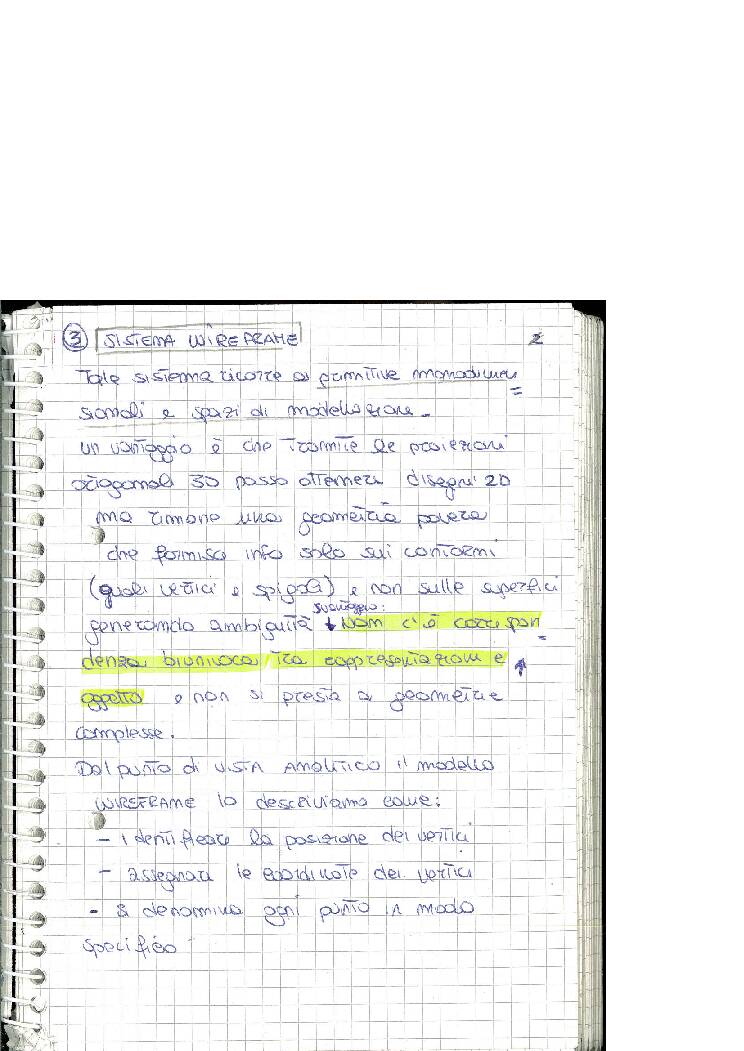 3 SISTEMA WIREFRAME 2
Tale sistema ricorre a primitive monodimen
sionali e spazi di modellazione.
un vantaggio è che tramite le proiezioni
ortogonali 3D posso ottenere disegni 2D
ma rimane una geometria povera
che fornisce info solo sui contorni
(quali vertici e spigoli) e non sulle superfici
svantaggio:
generando ambiguità ↓ Non c'è corrispon
denza biunivoca tra rappresentazione e ↑
oggetto e non si presta a geometrie
complesse.
Dal punto di vista Analitico il modello
WIREFRAME lo descriviamo come:
- identificare la posizione dei vertici
- assegnare le coordinate dei vertici
- si denomina ogni punto in modo
specifico